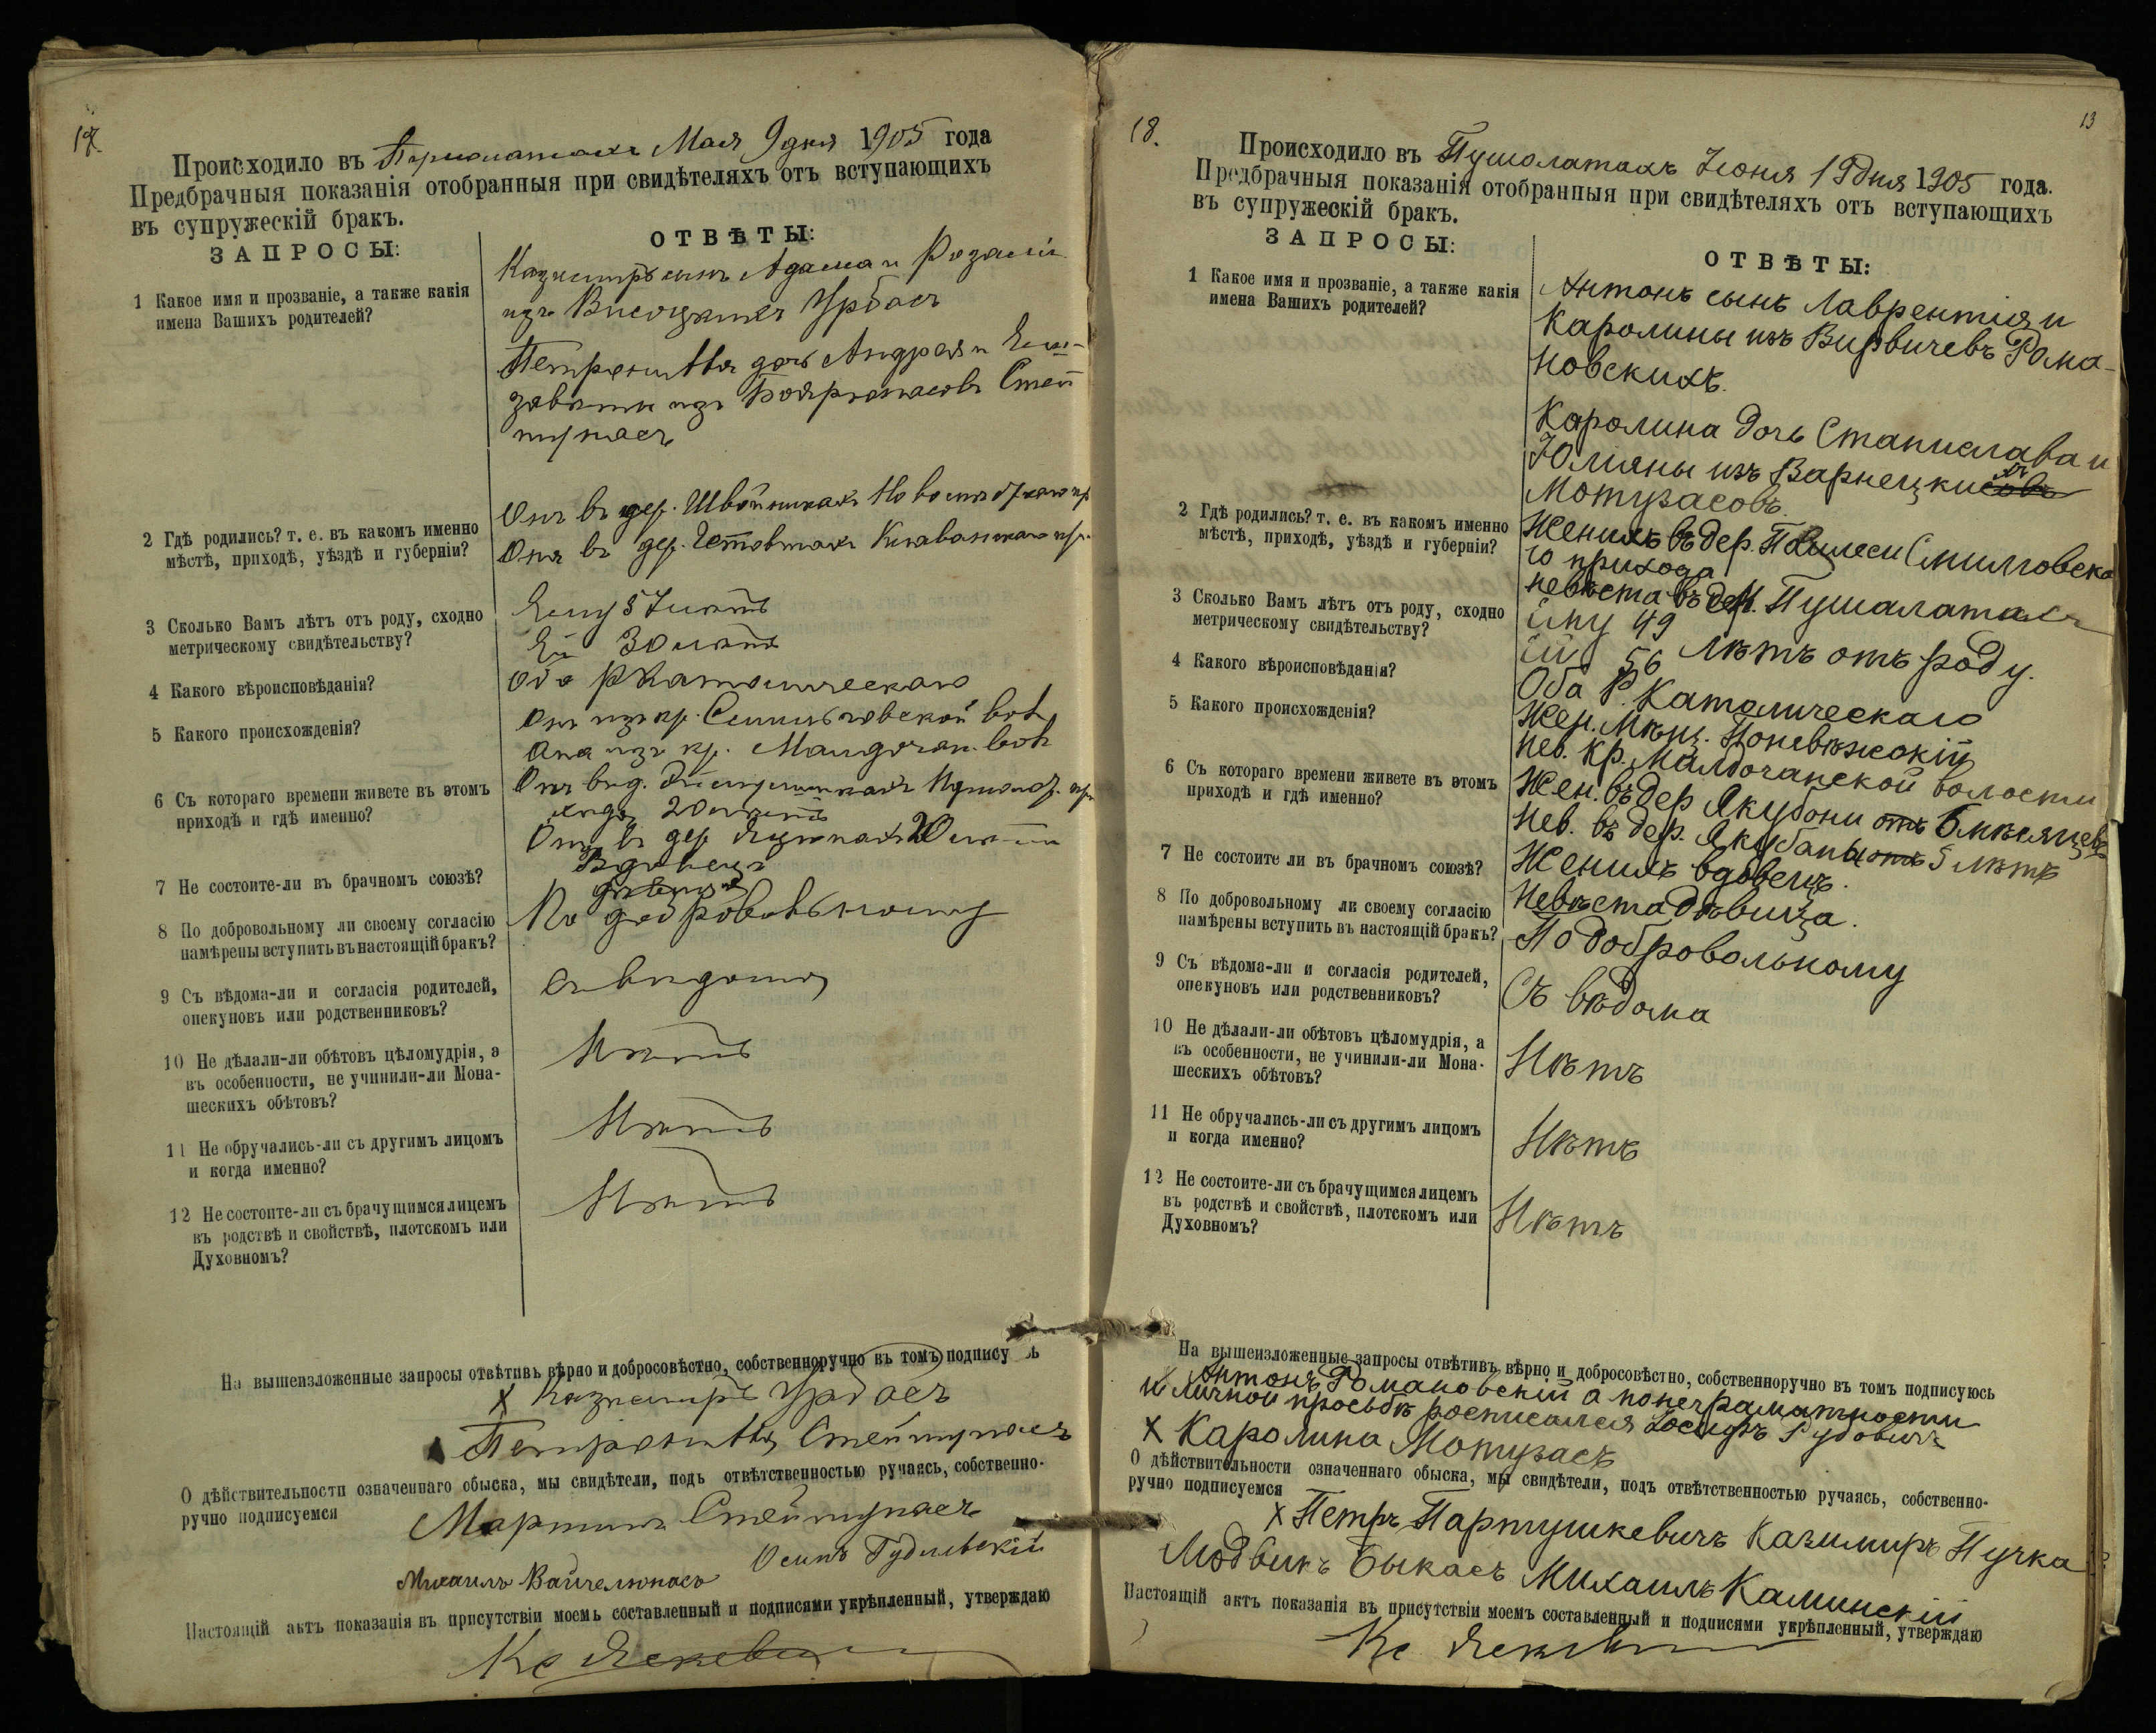 17.
Происходило въ Пушолатахъ Мая 9 дня 1905 года
Предбрачныя показанія отобранныя при свидѣтеляхъ отъ вступающихъ
въ супружескій бракъ.
ЗАПРОСЫ:
ОТВѢТЫ:
1 Какое имя и прозваніе, а также какія
имена Вашихъ родителей?
Казиміръ сынъ Адама и Розаліи
изъ Висоцкихъ Урбасъ
дочь Андрея и Ели-
заветы изъ
2 Гдѣ родились? т. е. въ какомъ именно
мѣстѣ, приходѣ, уѣздѣ и губерніи?
Онъ въ дер.
Она въ дер.
3 Сколько Вамъ лѣтъ отъ роду, сходно
метрическому свидѣтельству?
Ему 57 лѣтъ
Ей 30 лѣтъ
4 Какого вѣроисповѣданія?
Оба Р Католическаго
5 Какого происхожденія?
Онъ изъ кр. Смильговской вол
Она изъ кр. вол
6 Съ котораго времени живете въ этомъ
приходѣ и гдѣ именно?
20 лѣтъ
Она въ дер. 20 лѣтъ
7 Не состоите-ли въ брачномъ союзѣ?
Вдовецъ
дѣвица
8 По добровольному ли своему согласію
намѣрены вступить въ настоящій бракъ?
По добровольному
9 Съ вѣдома-ли и согласія родителей,
опекуновъ или родственниковъ?
Съ вѣдома
10 Не дѣлали-ли обѣтовъ цѣломудрія, а
въ особенности, не учинили-ли Мона-
шескихъ обѣтовъ?
Нѣтъ
11 Не обручались-ли съ другимъ лицомъ
и когда именно?
Нѣтъ
12 Не состоите-ли съ брачущимся лицемъ
въ родствѣ и свойствѣ, плотскомъ или
Духовномъ?
Нѣтъ
На вышеизложенные запросы отвѣтивъ вѣрно и добросовѣстно, собственноручно въ томъ подпису ь
X Казиміръ Урбасъ
О дѣйствительности означеннаго обыска, мы свидѣтели, подъ отвѣтственностью ручаясь, собственно-
ручно подписуемся
Мартинъ
Осипъ
Михаилъ Вайчелюнасъ
Настоящій актъ показанія въ присутствіи моемъ составленный и подписями укрѣпленный, утверждаю
Кс
18.
13
Происходило въ Пушолатахъ Іюня 19 дня 1905 года.
Предбрачныя показанія отобранныя при свидѣтеляхъ отъ вступающихъ
въ супружескій бракъ.
ЗАПРОСЫ:
ОТВѢТЫ:
1 Какое имя и прозваніе, а также какія
имена Вашихъ родителей?
Антонъ сынъ Лаврентія и
Каролины изъ Вирвичевъ Рома-
новскихъ.
Каролина дочь Станислава и
Юліяны изъ Варнецкихъ
Мотузасовъ.
2 Гдѣ родились? т. е. въ какомъ именно
мѣстѣ, приходѣ, уѣздѣ и губерніи?
Женихъ въ дер. Смилговска
го прихода
невѣста въ дер. Пушалатахъ
3 Сколько Вамъ лѣтъ отъ роду, сходно
метрическому свидѣтельству?
ему 49
ей 56 лѣтъ отъ роду.
4 Какого вѣроисповѣданія?
Оба Р. Католическаго
5 Какого происхожденія?
Жен. Мѣщ. Поневѣжскій
Нев. кр. Малдочанской волости
6 Съ котораго времени живете въ этомъ
приходѣ и гдѣ именно?
Жен. въ дер Якубони отъ 6 мѣсяцевъ
Нев. въ дер. Якубаны отъ 5 лѣтъ
7 Не состоите ли въ брачномъ союзѣ?
Женихъ вдовецъ.
Невѣста дѣвица.
8 По добровольному ли своему согласію
намѣрены вступить въ настоящій бракъ?
По добровольному
9 Съ вѣдома-ли и согласія родителей,
опекуновъ или родственниковъ?
Съ вѣдома
10 Не дѣлали-ли обѣтовъ цѣломудрія, а
въ особенности, не учинили-ли Мона-
шескихъ обѣтовъ?
Нѣтъ
11 Не обручались-ли съ другимъ лицомъ
и когда именно?
Нѣтъ
12 Не состоите-ли съ брачущимся лицемъ
въ родствѣ и свойствѣ, плотскомъ или
Духовномъ?
Нѣтъ
На вышеизложенные запросы отвѣтивъ вѣрно и добросовѣстно, собственноручно въ томъ подписуюсь
Антонъ Романовскій а по неграматности
и личной просьбѣ росписался Іосифъ
X Каролина Мотузасъ
О дѣйствительности означеннаго обыска, мы свидѣтели, подъ отвѣтственностью ручаясь, собственно-
ручно подписуемся
X Петръ Партушкевичъ Казимиръ Пучка
Людвикъ Быкасъ Михаилъ Каминскій
Настоящій актъ показанія въ присутствіи моемъ составленный и подписями укрѣпленный, утверждаю
Кс